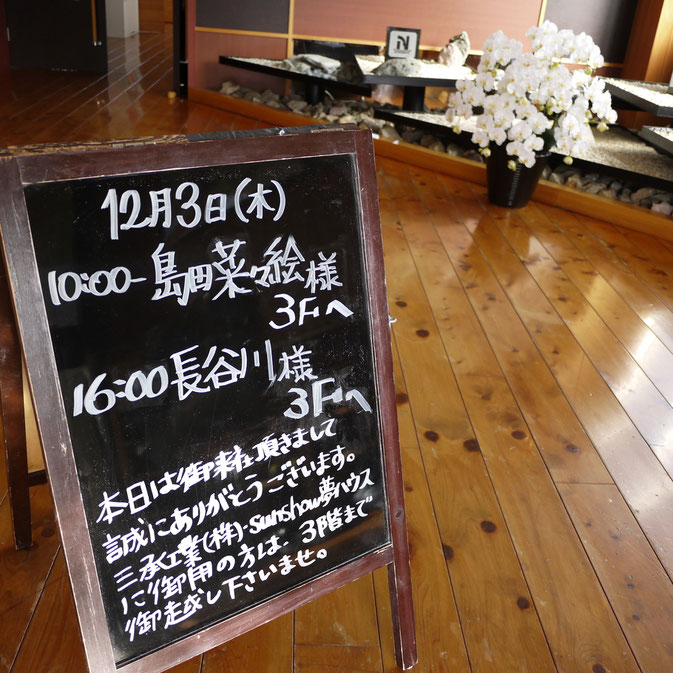 12月3日(木)
10:00- 島田菜々絵様
3Fへ
16:00 長谷川様
3Fへ
本日は御来社頂きまして
誠にありがとうございます。
三承工業(株)・sunshow夢ハウス
に御用の方は、3階まで
御越し下さいませ。
N